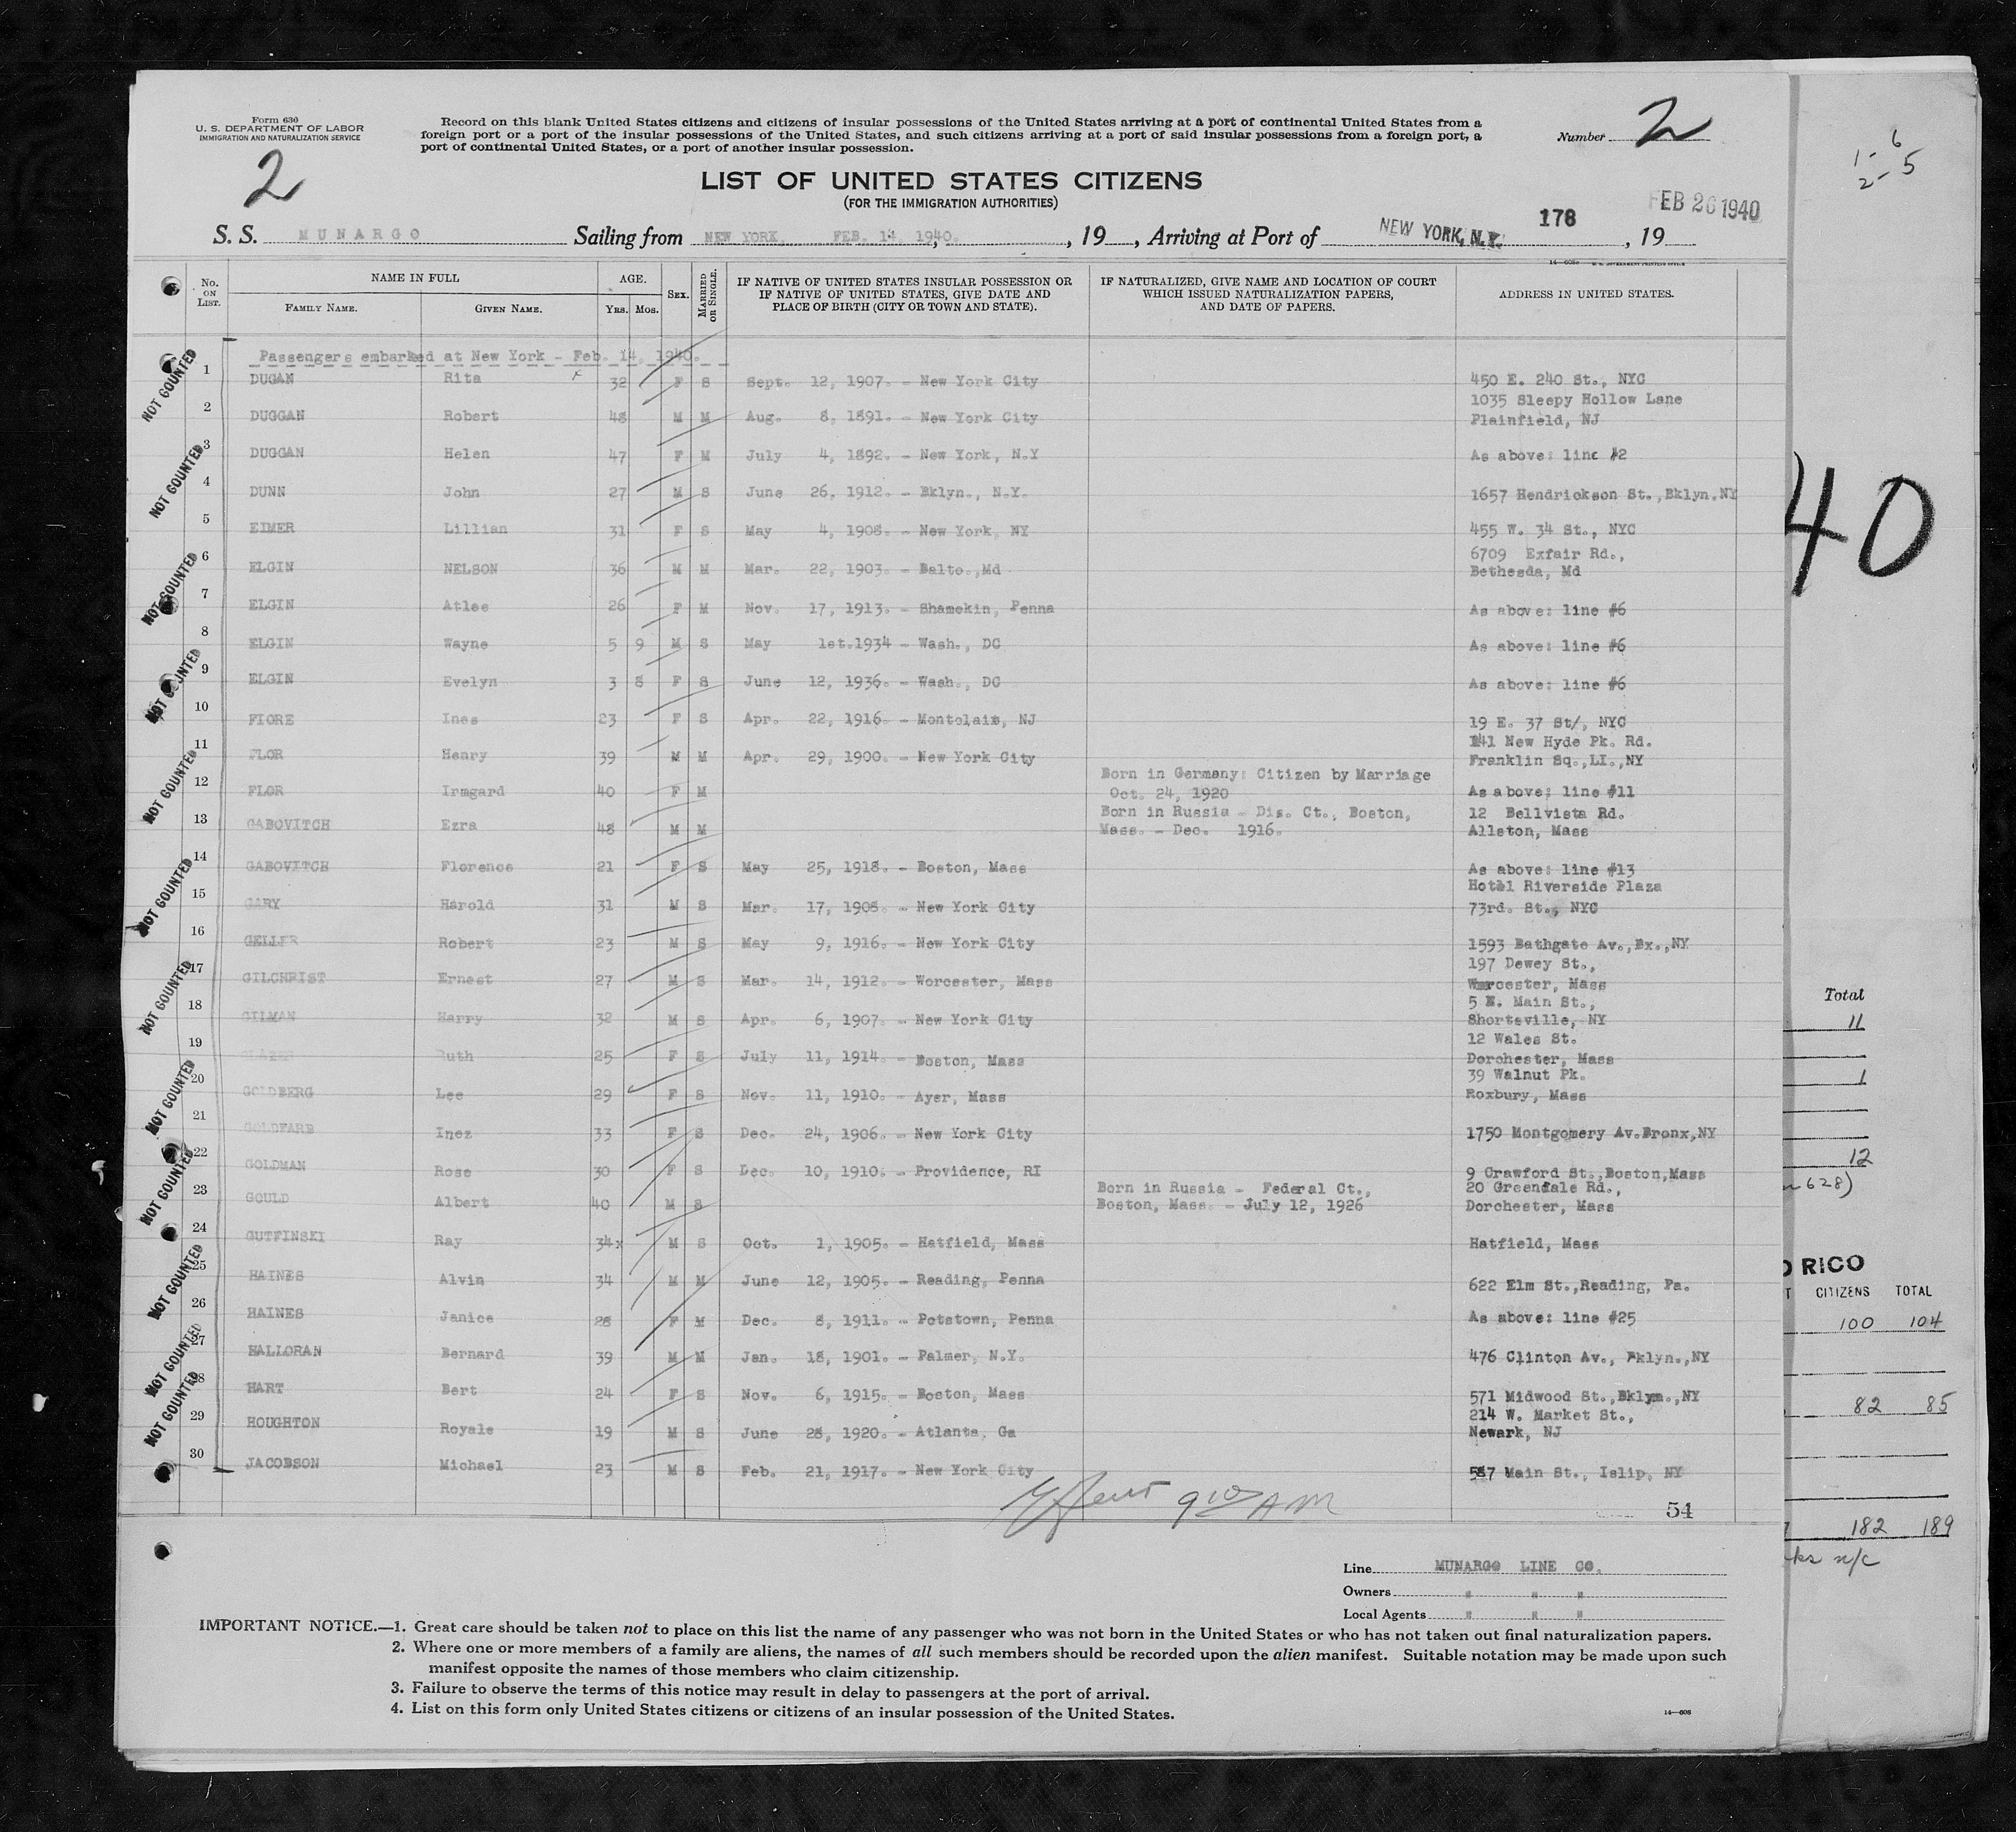 Form 630
U. S. DEPARTMENT OF LABOR
IMMIGRATION AND NATURALIZATION SERVICE
2
Record on this blank United States citizens and citizens of insular possessions of the United States arriving at a port of continental United States from a
foreign port or a port of the insular possessions of the United States, and such citizens arriving at a port of said insular possessions from a foreign port, a
port of continental United States, or a port of another insular possession.
Number 2
LIST OF UNITED STATES CITIZENS
(FOR THE IMMIGRATION AUTHORITIES)
FEB 26 1940
178
S. S. MUNARGO Sailing from NEW YORK, FEB. 14, 1940. , 19 , Arriving at Port of NEW YORK, N.Y. , 19
No. ON LIST. NAME IN FULL FAMILY NAME. GIVEN NAME. AGE. Yrs. Mos. SEX. MARRIED OR SINGLE. IF NATIVE OF UNITED STATES INSULAR POSSESSION OR IF NATIVE OF UNITED STATES, GIVE DATE AND PLACE OF BIRTH (CITY OR TOWN AND STATE). IF NATURALIZED, GIVE NAME AND LOCATION OF COURT WHICH ISSUED NATURALIZATION PAPERS, AND DATE OF PAPERS. ADDRESS IN UNITED STATES.
Passengers embarked at New York - Feb. 14, 1940.
1 DUGAN Rita x 32 F S Sept. 12, 1907. - New York City 450 E. 240 St., NYC
1035 Sleepy Hollow Lane
2 DUGGAN Robert 48 M M Aug. 8, 1891. - New York City Plainfield, NJ
3 DUGGAN Helen 47 F M July 4, 1892. - New York, N.Y As above: line #2
4 DUNN John 27 M S June 26, 1912. - Bklyn., N.Y. 1657 Hendrickson St.,Bklyn.NY
5 EIMER Lillian 31 F S May 4, 1908. - New York, NY 455 W. 34 St., NYC
6709 Exfair Rd.,
6 ELGIN NELSON 36 M M Mar. 22, 1903. - Balto.,Md Bethesda, Md
7 ELGIN Atlee 26 F M Nov. 17, 1913. - Shamokin, Penna As above: line #6
8 ELGIN Wayne 5 9 M S May 1st.1934 - Wash., DC As above: line #6
9 ELGIN Evelyn 3 8 F S June 12, 1936. - Wash., DC As above: line #6
10 FIORE Ines 23 F S Apr. 22, 1916. - Montclair, NJ 19 E. 37 St/, NYC
141 New Hyde Pk. Rd.
11 FLOR Henry 39 M M Apr. 29, 1900. - New York City Franklin Sq.,LI.,NY
Born in Germany: Citizen by Marriage
12 FLOR Irmgard 40 F M Oct. 24, 1920 As above: line #11
Born in Russia - Dis. Ct., Boston, 12 Bellvista Rd.
13 GABOVITCH Ezra 48 M M Mass. - Dec. 1916. Allston, Mass
14 GABOVITCH Florence 21 F S May 25, 1918. - Boston, Mass As above: line #13
Hotel Riverside Plaza
15 GARY Harold 31 M S Mar. 17, 1908. - New York City 73rd. St., NYC
16 GELLER Robert 23 M S May 9, 1916. - New York City 1593 Bathgate Av.,Bx.,NY
197 Dewey St.,
17 GILCHRIST Ernest 27 M S Mar. 14, 1912. - Worcester, Mass Worcester, Mass
5 E. Main St.,
18 GILMAN Harry 32 M S Apr. 6, 1907. - New York City Shortsville, NY
12 Wales St.
19 Ruth 25 F S July 11, 1914. - Boston, Mass Dorchester, Mass
39 Walnut Pk.
20 GOLDBERG Lee 29 F S Nov. 11, 1910. - Ayer, Mass Roxbury, Mass
21 GOLDFARB Inez 33 F S Dec. 24, 1906. - New York City 1750 Montgomery Av.Bronx,NY
22 GOLDMAN Rose 30 F S Dec. 10, 1910. - Providence, RI 9 Crawford St.,Boston,Mass
Born in Russia - Federal Ct., 20 Greendale Rd.,
23 GOULD Albert 40 M S Boston, Mass. - July 12, 1926 Dorchester, Mass
24 GUTFINSKI Ray 34x M S Oct. 1, 1905. - Hatfield, Mass Hatfield, Mass
25 HAINES Alvin 34 M M June 12, 1905. - Reading, Penna 622 Elm St.,Reading, Pa.
26 HAINES Janice 28 F M Dec. 8, 1911. - Potstown, Penna As above: line #25
27 HALLORAN Bernard 39 M M Jan. 18, 1901. - Palmer, N.Y. 476 Clinton Av., Bklyn.,NY
28 HART Bert 24 F S Nov. 6, 1915. - Boston, Mass 571 Midwood St.,Bklyn.,NY
214 W. Market St.,
29 HOUGHTON Royale 19 M S June 28, 1920. - Atlanta, Ga Newark, NJ
30 JACOBSON Michael 23 M S Feb. 21, 1917. - New York City 587 Main St., Islip, NY
NOT COUNTED
NOT COUNTED
NOT COUNTED
NOT COUNTED
NOT COUNTED
NOT COUNTED
NOT COUNTED
NOT COUNTED
NOT COUNTED
NOT COUNTED
NOT COUNTED
NOT COUNTED
9 10 AM
54
Line MUNARGO LINE CO.
Owners " " "
Local Agents " " "
IMPORTANT NOTICE.—1. Great care should be taken not to place on this list the name of any passenger who was not born in the United States or who has not taken out final naturalization papers.
2. Where one or more members of a family are aliens, the names of all such members should be recorded upon the alien manifest. Suitable notation may be made upon such
manifest opposite the names of those members who claim citizenship.
3. Failure to observe the terms of this notice may result in delay to passengers at the port of arrival.
4. List on this form only United States citizens or citizens of an insular possession of the United States.
14—608
1 - 6
2 - 5
40
Total
11
1
12
628)
RICO
CITIZENS TOTAL
100 104
82 85
182 189
n/c